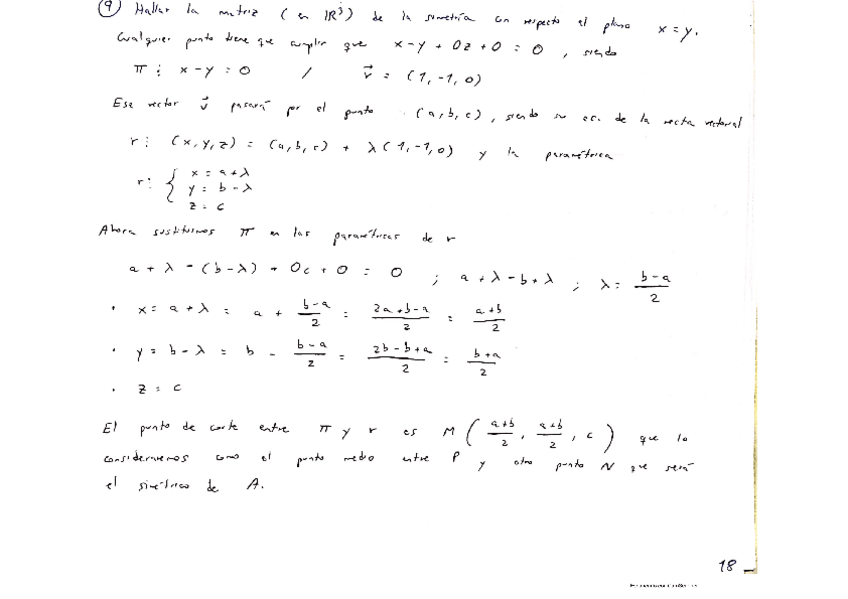 9 Hallar la matriz (en IR³) de la simetría con respecto al plano x=y.
Cualquier punto tiene que cumplir que x-y+0z+0=0, siendo
π: x-y=0 / v⃗=(1,-1,0)
Ese vector v⃗ pasará por el punto (a,b,c), siendo su ec. de la recta vectorial
r: (x,y,z)=(a,b,c)+λ(1,-1,0) y la paramétrica
r: { x=a+λ
y=b-λ
z=c
Ahora sustituimos π en las paramétricas de r
a+λ-(b-λ)+0c+0=0 ; a+λ-b+λ ; λ=(b-a)/2
· x=a+λ = a+(b-a)/2 = (2a+b-a)/2 = (a+b)/2
· y=b-λ = b-(b-a)/2 = (2b-b+a)/2 = (b+a)/2
· z=c
El punto de corte entre π y r es M((a+b)/2, (a+b)/2, c) que lo
consideraremos como el punto medio entre P y otro punto N que será
el simétrico de A.
18